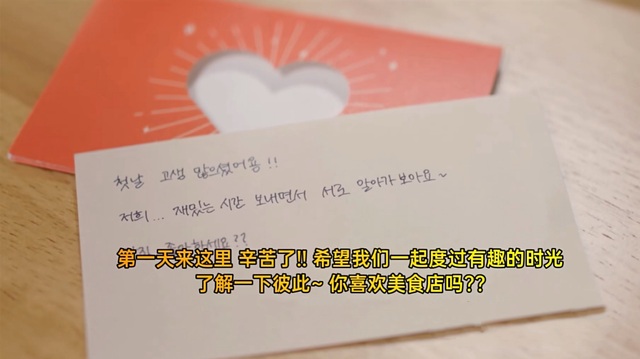 첫날 고생 많으셨어용!!
저희... 재밌는 시간 보내면서 서로 알아가보아요~
좋아하세요??
第一天来这里 辛苦了!! 希望我们一起度过有趣的时光
了解一下彼此~ 你喜欢美食店吗??